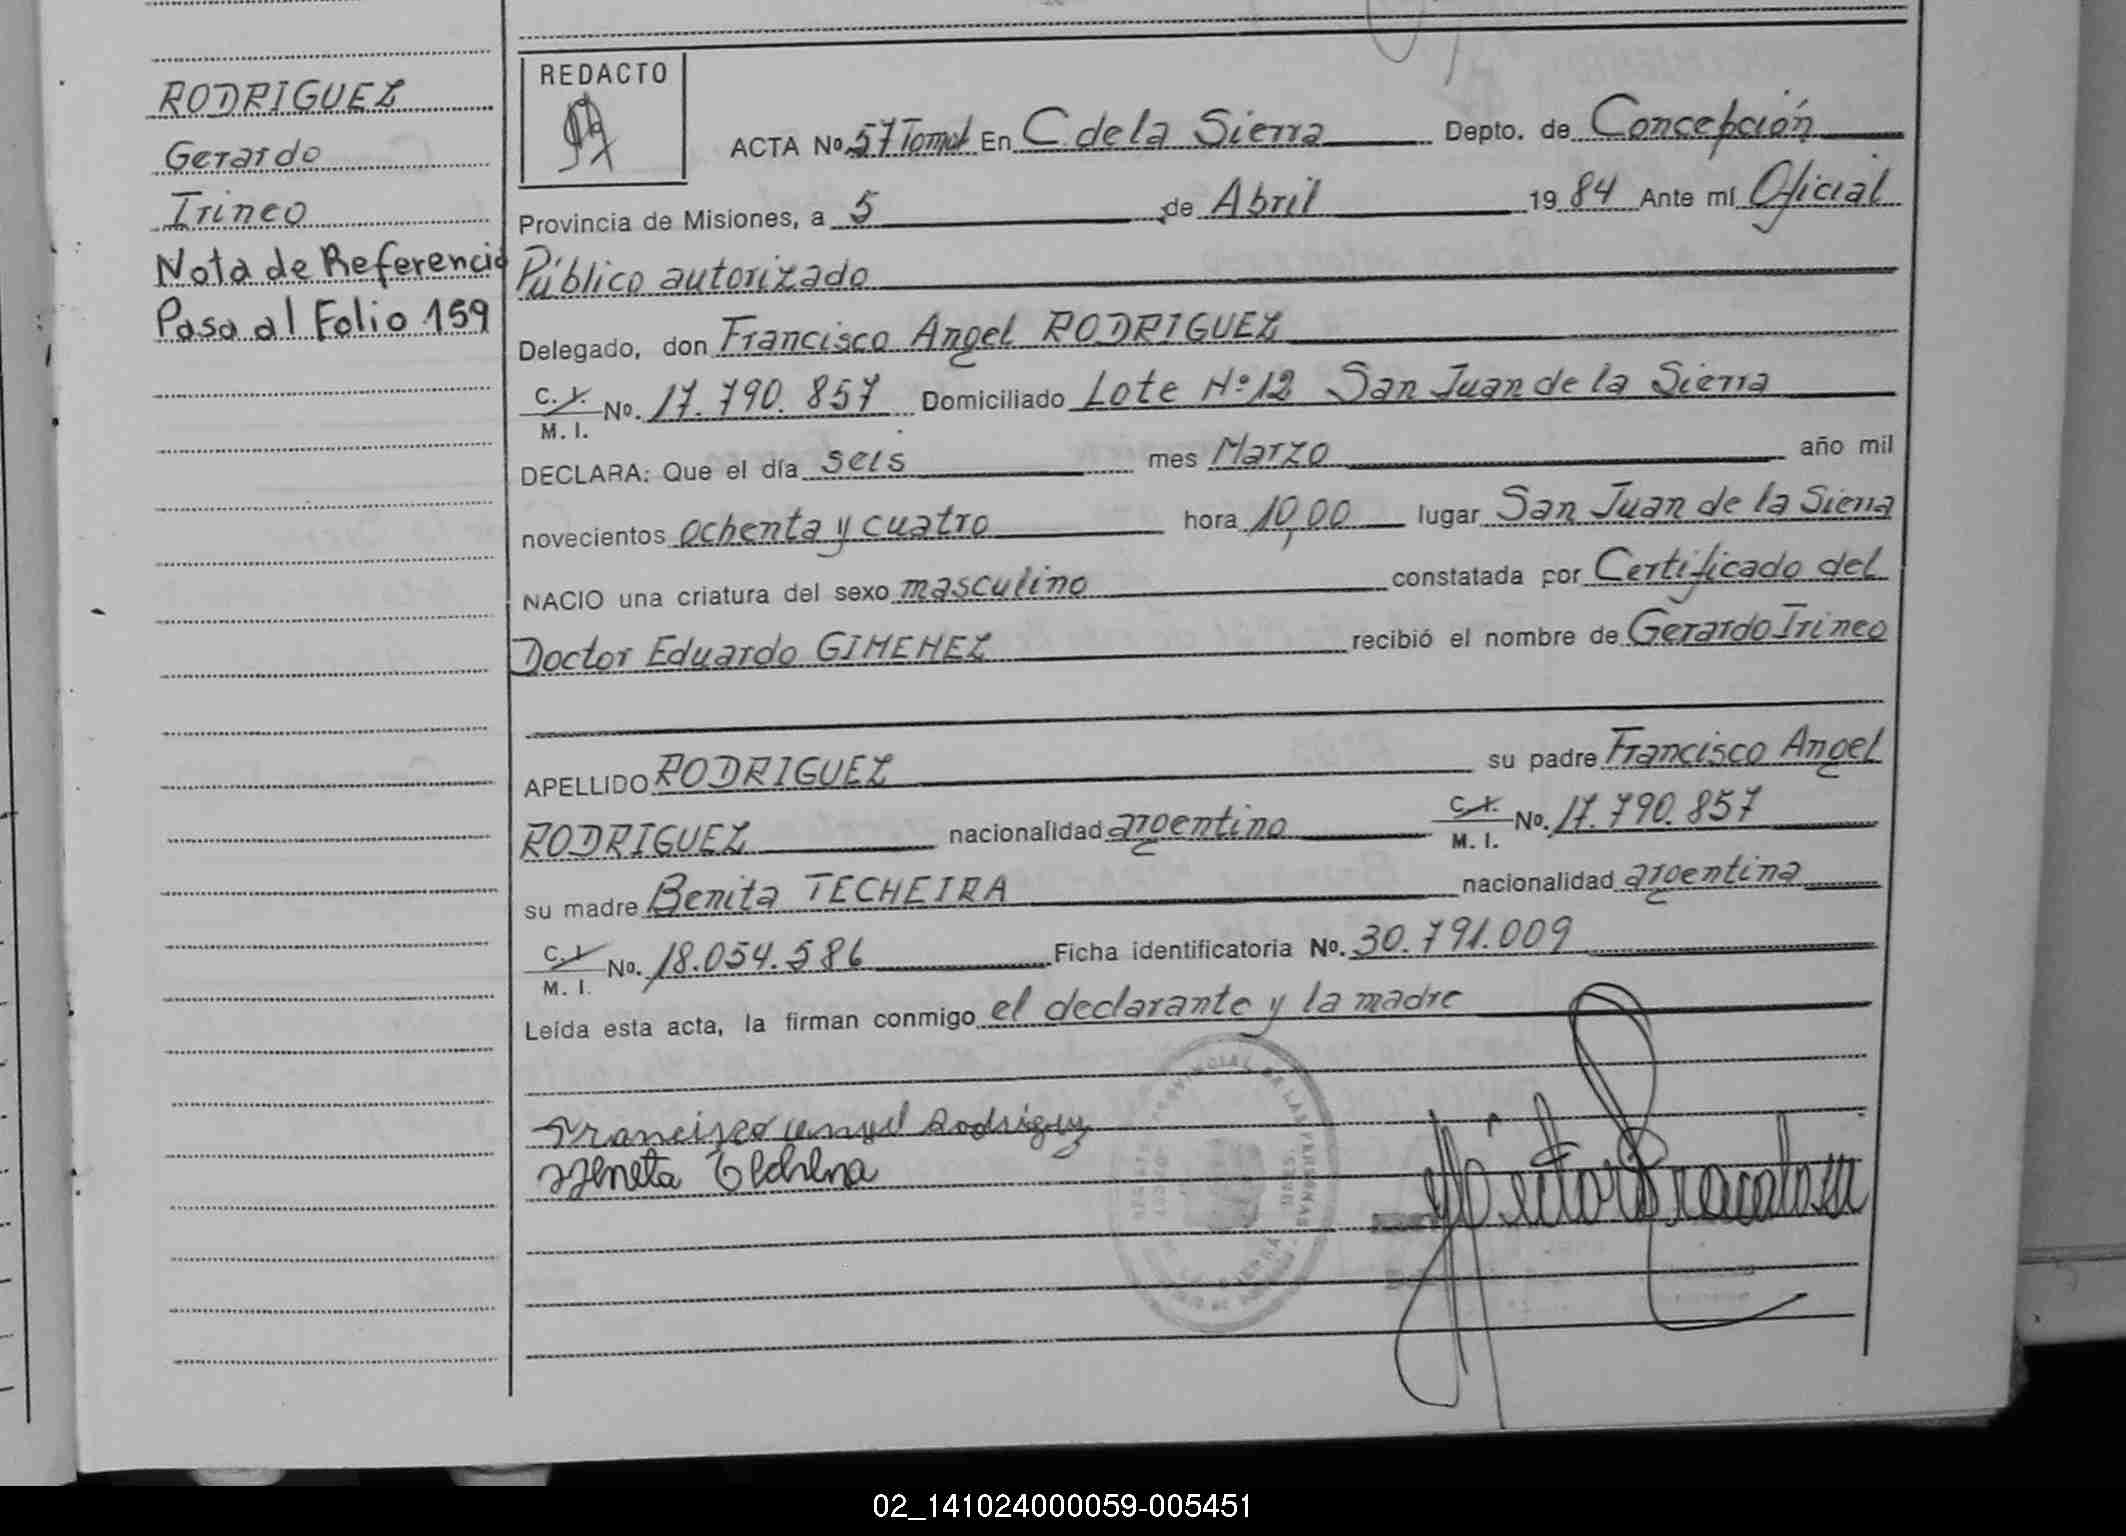 RODRIGUEZ
Gerardo
Irineo
Nota de Referencia
Pasa al Folio 159
REDACTO
ACTA No. 57 Tomo I En C. de la Sierra Depto. de Concepción
Provincia de Misiones, a 5 de Abril 1984 Ante mí Oficial
Público autorizado
Delegado, don Francisco Angel RODRIGUEZ
C. I. No. 17.790.857 Domiciliado Lote Nº 12 San Juan de la Sierra
M. I.
DECLARA: Que el día seis mes Marzo año mil
novecientos ochenta y cuatro hora 10,00 lugar San Juan de la Sierra
NACIO una criatura del sexo masculino constatada por Certificado del
Doctor Eduardo GIMENEZ recibió el nombre de Gerardo Irineo
APELLIDO RODRIGUEZ su padre Francisco Angel
RODRIGUEZ nacionalidad argentino C. I. No. 17.790.857
M. I.
su madre Benita TECHEIRA nacionalidad argentina
C. I. No. 18.054.586 Ficha identificatoria No. 30.791.009
M. I.
Leída esta acta, la firman conmigo el declarante y la madre
02_141024000059-005451